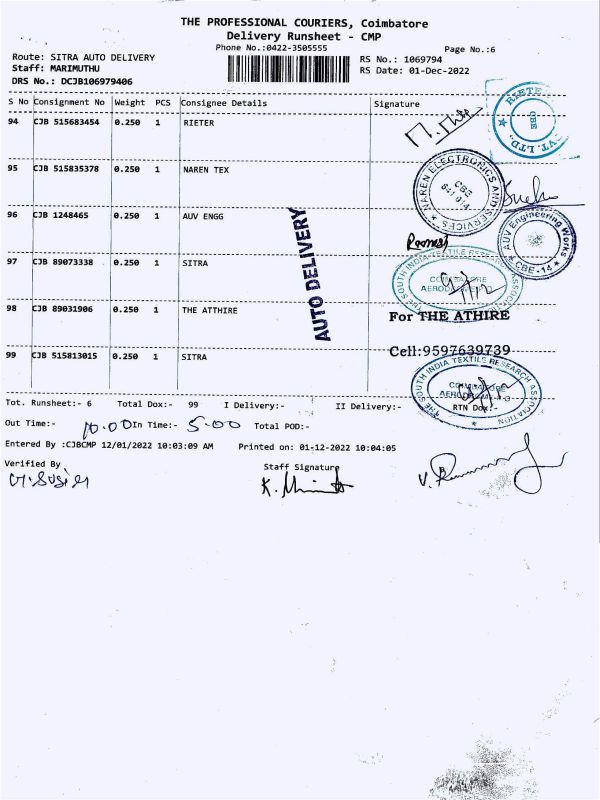 THE PROFESSIONAL COURIERS, Coimbatore
Delivery Runsheet - CMP
Phone No.:0422-3505555
Page No.:6
Route: SITRA AUTO DELIVERY
RS No.: 1069794
Staff: MARIMUTHU
RS Date: 01-Dec-2022
DRS No.: DCJB106979406
S No Consignment No Weight PCS Consignee Details Signature
94 CJB 515683454 0.250 1 RIETER
95 CJB 515835378 0.250 1 NAREN TEX
96 CJB 1248465 0.250 1 AUV ENGG
97 CJB 89073338 0.250 1 SITRA
98 CJB 89031906 0.250 1 THE ATTHIRE
99 CJB 515813015 0.250 1 SITRA
AUTO DELIVERY
RIETE
CBE
VT. LTD.
NAREN ELECTRONICS AND SERVICES
CBE
AUV Engineering Works
CBE-14
THE SOUTH INDIA TEXTILE RESEARCH ASSOCIATION
For THE ATHIRE
Cell:9597639739
THE SOUTH INDIA TEXTILE RESEARCH ASSOCIATION
Tot. Runsheet:- 6 Total Dox:- 99 I Delivery:- II Delivery:- RTN Dox:-
Out Time:- 10.00 In Time:- 5.00 Total POD:-
Entered By :CJBCMP 12/01/2022 10:03:09 AM Printed on: 01-12-2022 10:04:05
Verified By
Staff Signature